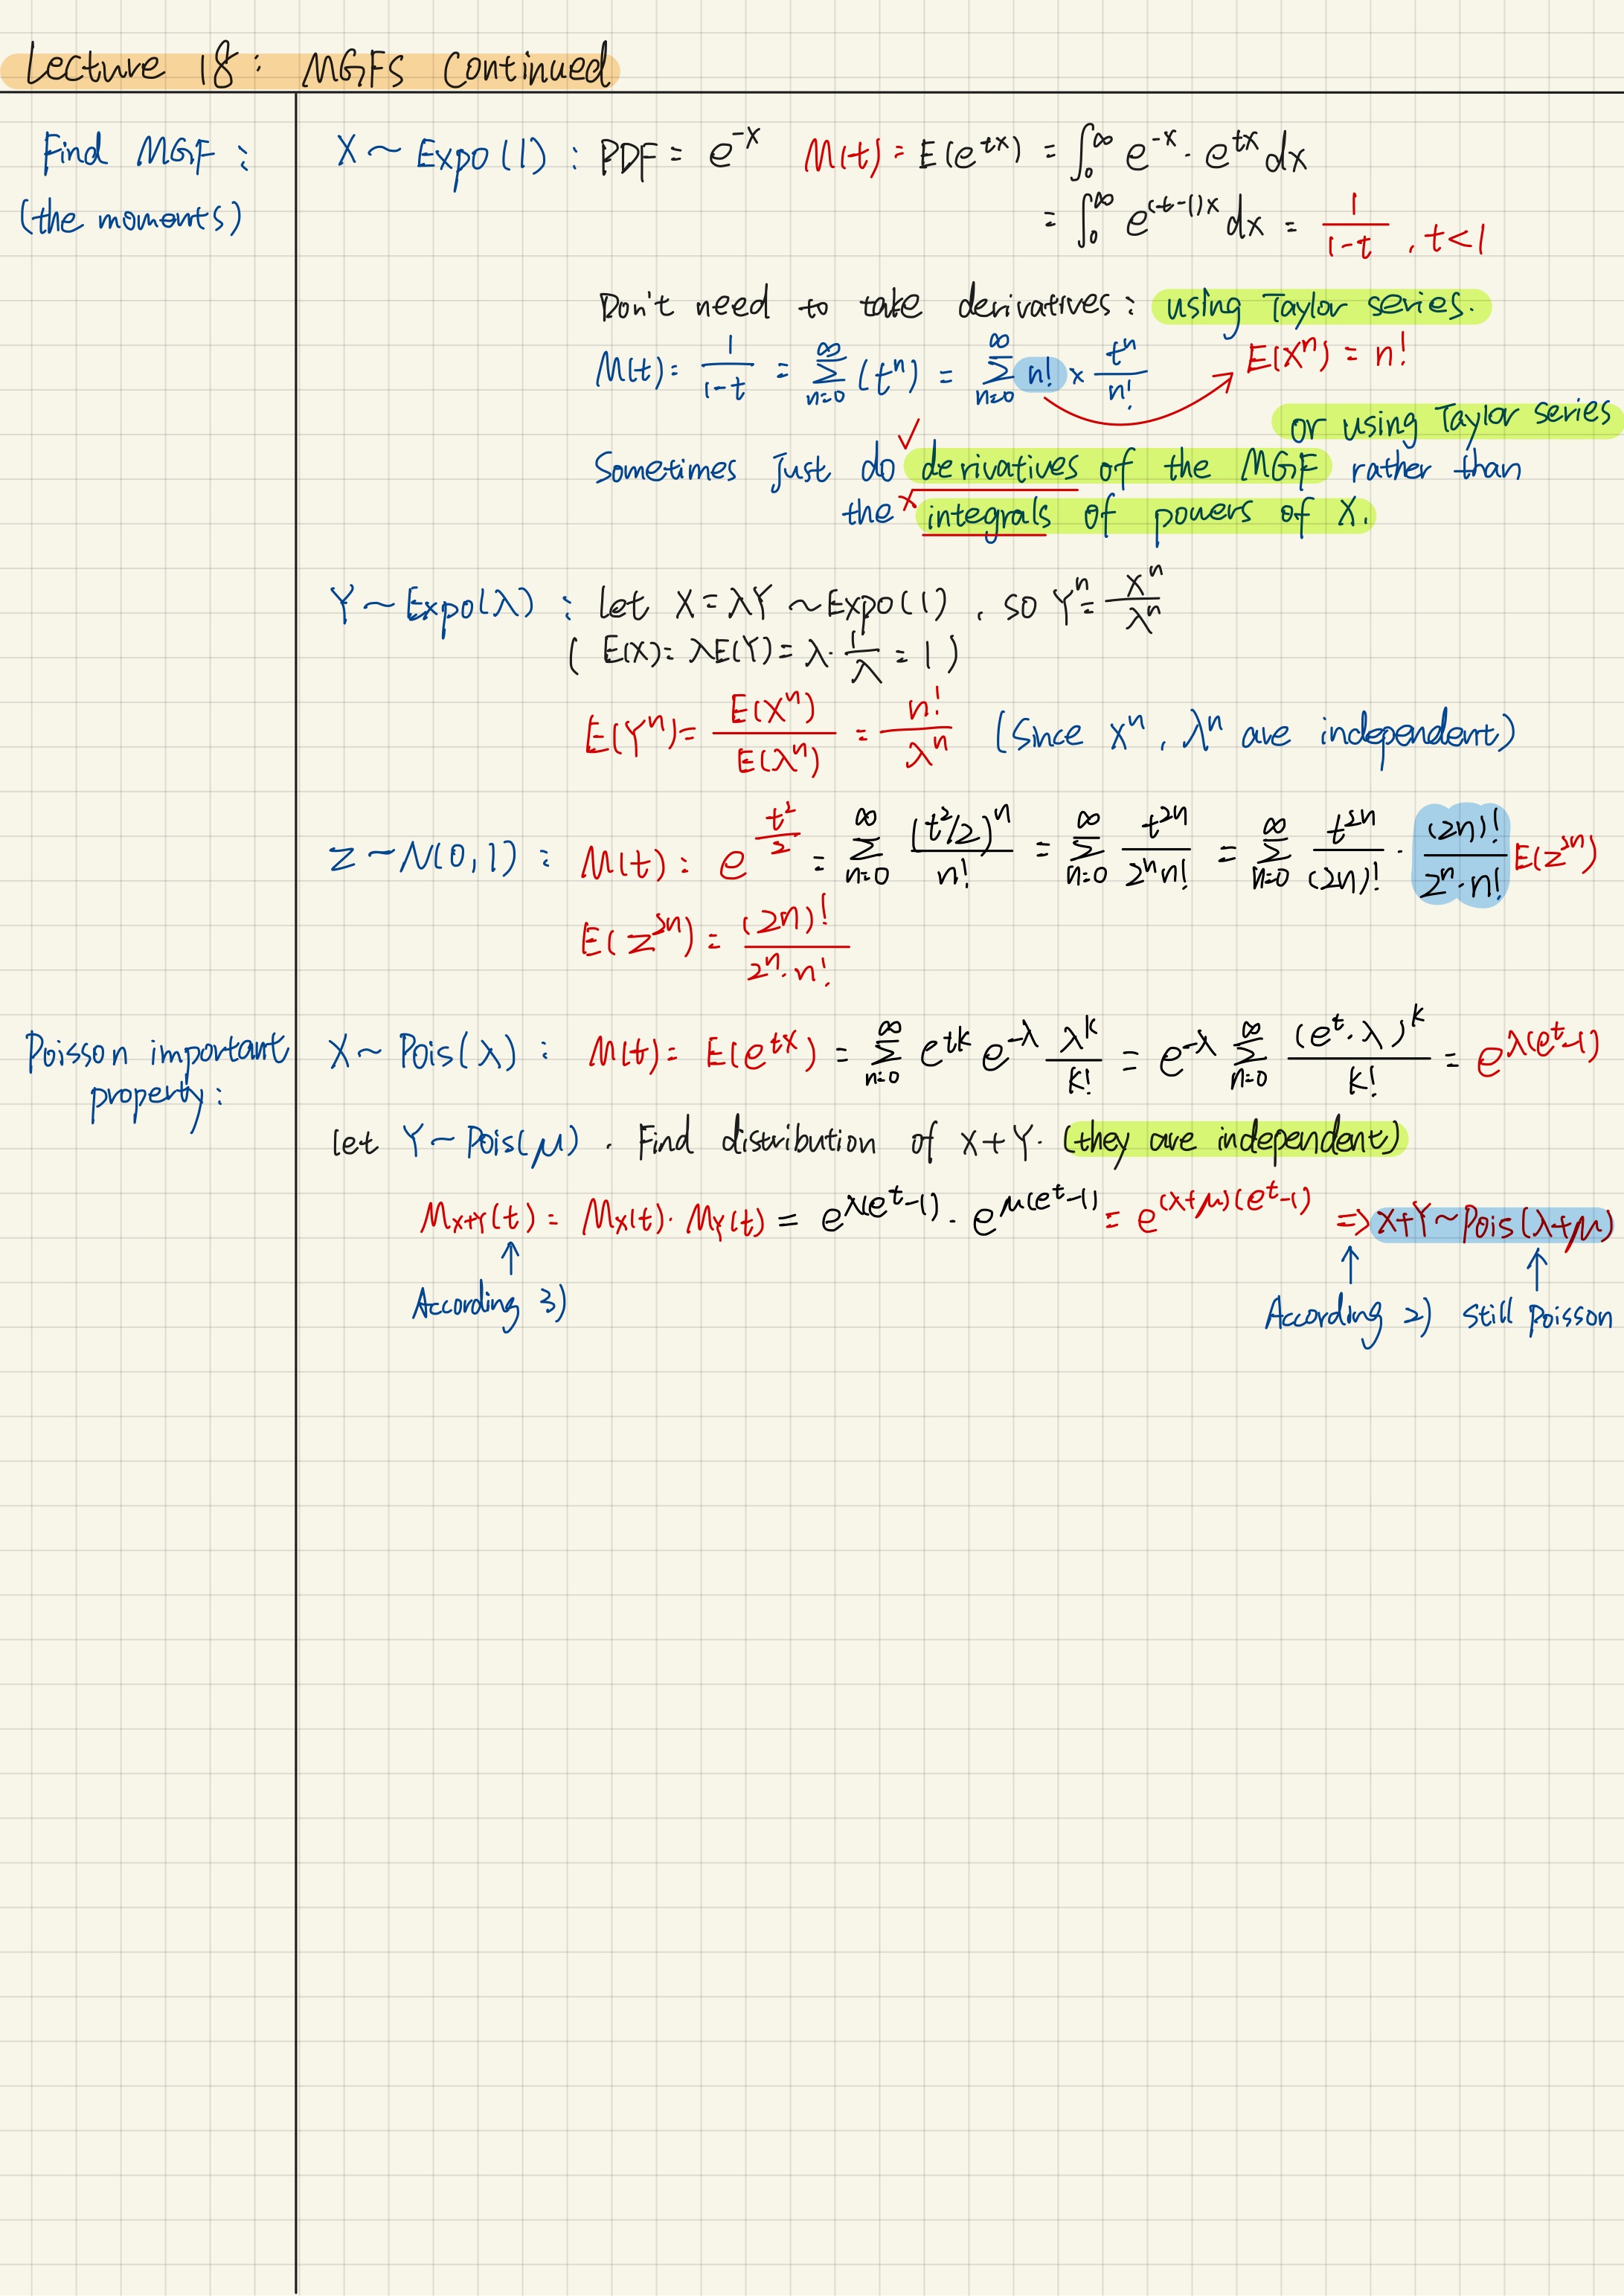 Lecture 18: MGFs Continued
Find MGF:
(the moments)
X ~ Expo(1): PDF = e^{-x} M(t) = E(e^{tx}) = ∫_0^∞ e^{-x} · e^{tx} dx
= ∫_0^∞ e^{(t-1)x} dx = 1/(1-t), t<1
Don't need to take derivatives: using Taylor series.
M(t) = 1/(1-t) = Σ_{n=0}^∞ (t^n) = Σ_{n=0}^∞ n! × t^n/n! E(X^n) = n!
or using Taylor series
Sometimes just do ✓ derivatives of the MGF rather than
the × integrals of powers of X.
Y ~ Expo(λ): let X = λY ~ Expo(1), so Y^n = X^n/λ^n
(E(X) = λE(Y) = λ · 1/λ = 1)
E(Y^n) = E(X^n)/E(λ^n) = n!/λ^n (Since X^n, λ^n are independent)
Z ~ N(0,1): M(t): e^{t²/2} = Σ_{n=0}^∞ (t²/2)^n/n! = Σ_{n=0}^∞ t^{2n}/(2^n n!) = Σ_{n=0}^∞ t^{2n}/(2n)! · (2n)!/(2^n · n!) E(Z^{2n})
E(Z^{2n}) = (2n)!/(2^n · n!)
Poisson important
property:
X ~ Pois(λ): M(t) = E(e^{tX}) = Σ_{n=0}^∞ e^{tk} e^{-λ} λ^k/k! = e^{-λ} Σ_{n=0}^∞ (e^t · λ)^k/k! = e^{λ(e^t-1)}
let Y ~ Pois(μ). Find distribution of X+Y. (they are independent)
M_{X+Y}(t) = M_X(t) · M_Y(t) = e^{λ(e^t-1)} · e^{μ(e^t-1)} = e^{(λ+μ)(e^t-1)} => X+Y ~ Pois(λ+μ)
↑ ↑ ↑
According 3) According 2) Still Poisson